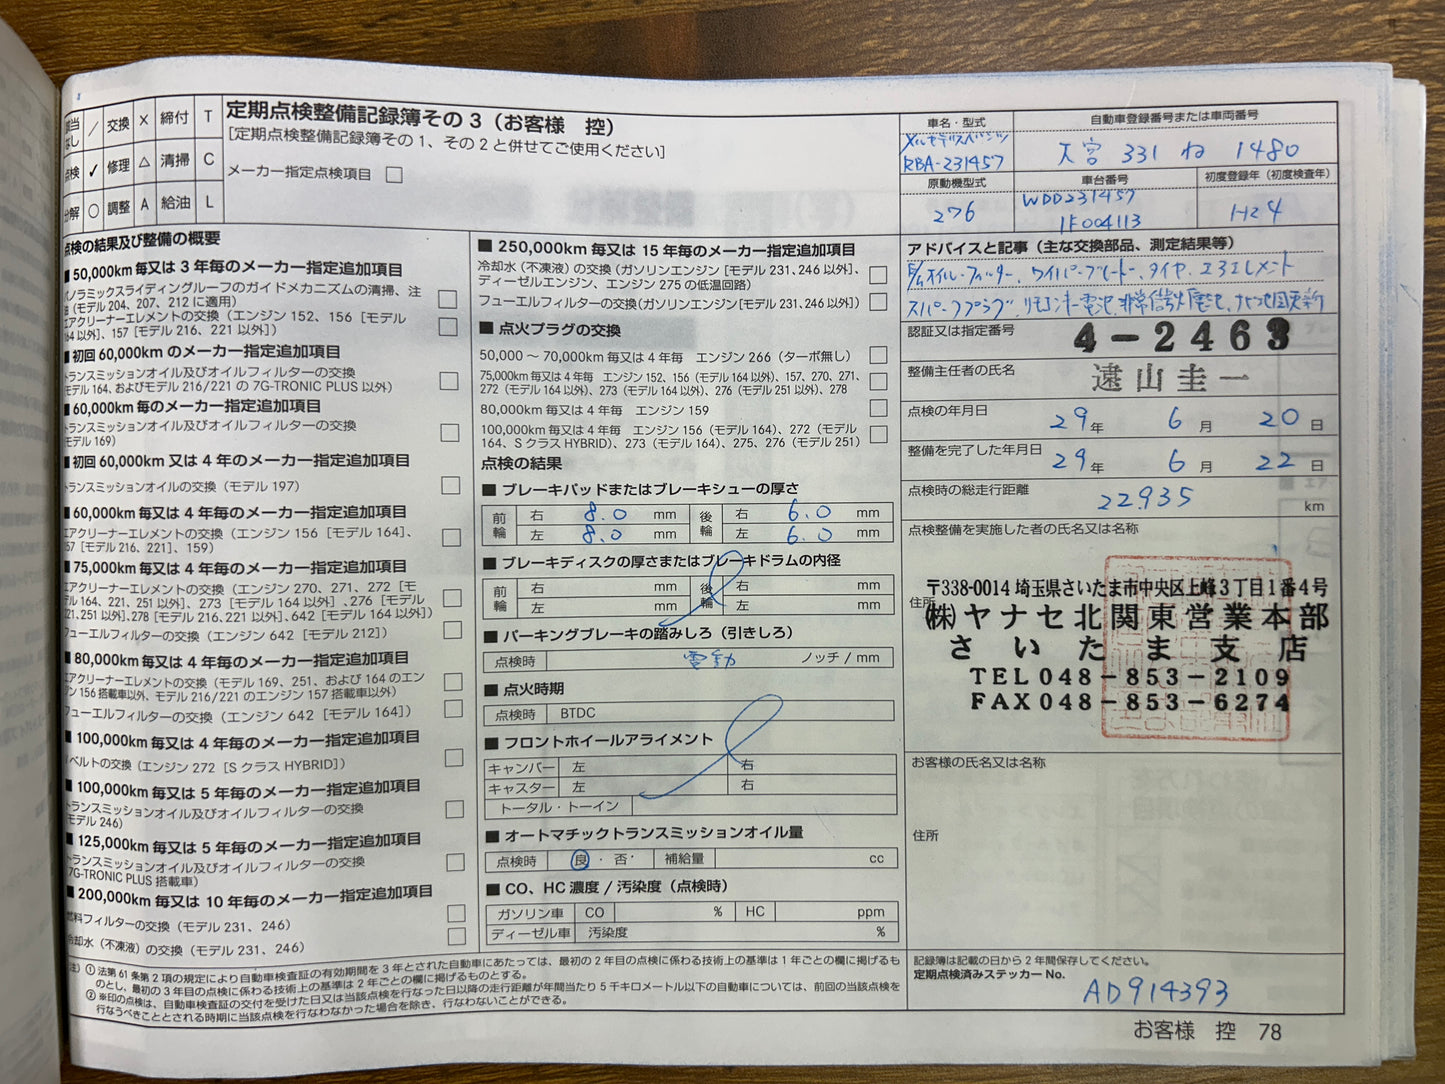 該当なし / 交換 X 締付 T
点検 ✓ 修理 △ 清掃 C
分解 ○ 調整 A 給油 L
定期点検整備記録簿その3（お客様　控）
［定期点検整備記録簿その1、その2と併せてご使用ください］
メーカー指定点検項目 □
車名・型式
メルセデスベンツ
RBA-231457
自動車登録番号または車両番号
大宮 331 ね 1480
原動機型式
276
車台番号
WDD231457
1F004113
初度登録年（初度検査年）
H24
点検の結果及び整備の概要
■ 50,000km毎又は3年毎のメーカー指定追加項目
パノラミックスライディングルーフのガイドメカニズムの清掃、注
油（モデル204、207、212に適用）
エアクリーナーエレメントの交換（エンジン152、156［モデル
164以外］、157［モデル216、221以外］）
■ 初回60,000kmのメーカー指定追加項目
トランスミッションオイル及びオイルフィルターの交換
（モデル164、およびモデル216/221の7G-TRONIC PLUS以外）
■ 60,000km毎のメーカー指定追加項目
トランスミッションオイル及びオイルフィルターの交換
（モデル169）
■ 初回60,000km又は4年のメーカー指定追加項目
トランスミッションオイルの交換（モデル197）
■ 60,000km毎又は4年毎のメーカー指定追加項目
エアクリーナーエレメントの交換（エンジン156［モデル164］、
157［モデル216、221］、159）
■ 75,000km毎又は4年毎のメーカー指定追加項目
エアクリーナーエレメントの交換（エンジン270、271、272［モ
デル164、221、251以外］、273［モデル164以外］、276［モデル
221、251以外］、278［モデル216、221以外］、642［モデル164以外］）
フューエルフィルターの交換（エンジン642［モデル212］）
■ 80,000km毎又は4年毎のメーカー指定追加項目
エアクリーナーエレメントの交換（モデル169、251、および164のエン
ジン156搭載車以外、モデル216/221のエンジン157搭載車以外）
フューエルフィルターの交換（エンジン642［モデル164］）
■ 100,000km毎又は4年毎のメーカー指定追加項目
Vベルトの交換（エンジン272［SクラスHYBRID］）
■ 100,000km毎又は5年毎のメーカー指定追加項目
トランスミッションオイル及びオイルフィルターの交換
（モデル246）
■ 125,000km毎又は5年毎のメーカー指定追加項目
トランスミッションオイル及びオイルフィルターの交換
（7G-TRONIC PLUS搭載車）
■ 200,000km毎又は10年毎のメーカー指定追加項目
燃料フィルターの交換（モデル231、246）
冷却水（不凍液）の交換（モデル231、246）
■ 250,000km毎又は15年毎のメーカー指定追加項目
冷却水（不凍液）の交換（ガソリンエンジン［モデル231、246以外］、
ディーゼルエンジン、エンジン275の低温回路）
フューエルフィルターの交換（ガソリンエンジン［モデル231、246以外］）
■ 点火プラグの交換
50,000～70,000km毎又は4年毎　エンジン266（ターボ無し）
75,000km毎又は4年毎　エンジン152、156（モデル164以外）、157、270、271、
272（モデル164以外）、273（モデル164以外）、276（モデル251以外）、278
80,000km毎又は4年毎　エンジン159
100,000km毎又は4年毎　エンジン156（モデル164）、272（モデル
164、SクラスHYBRID）、273（モデル164）、275、276（モデル251）
点検の結果
■ ブレーキパッドまたはブレーキシューの厚さ
前輪 右 8.0 mm 後輪 右 6.0 mm
左 8.0 mm 左 6.0 mm
■ ブレーキディスクの厚さまたはブレーキドラムの内径
前輪 右 mm 後輪 右 mm
左 mm 左 mm
■ パーキングブレーキの踏みしろ（引きしろ）
点検時 電動 ノッチ / mm
■ 点火時期
点検時 BTDC
■ フロントホイールアライメント
キャンバー 左 右
キャスター 左 右
トータル・トーイン
■ オートマチックトランスミッションオイル量
点検時 良・否 補給量 cc
■ CO、HC濃度 / 汚染度（点検時）
ガソリン車 CO % HC ppm
ディーゼル車 汚染度 %
アドバイスと記事（主な交換部品、測定結果等）
E/G オイル・フィルター、ワイパーブレード、タイヤ、エアエレメント
スパークプラグ、リモコンキー電池、非常信号灯電池、ナビ地図更新
認証又は指定番号 4-2463
整備主任者の氏名 遠山圭一
点検の年月日 29年 6月 20日
整備を完了した年月日 29年 6月 22日
点検時の総走行距離 22,935 km
点検整備を実施した者の氏名又は名称
〒338-0014 埼玉県さいたま市中央区上峰3丁目1番4号
住所
㈱ヤナセ北関東営業本部
さいたま支店
TEL 048-853-2109
FAX 048-853-6274
お客様の氏名又は名称
住所
記録簿は記載の日から2年間保存してください。
定期点検済みステッカー No.
AD914393
注）① 法第61条第2項の規定により自動車検査証の有効期間を3年とされた自動車にあたっては、最初の2年目の点検に係わる技術上の基準は1年ごとの欄に掲げるも
のとし、最初の3年目の点検に係わる技術上の基準は2年ごとの欄に掲げるものとする。
② ※印の点検は、自動車検査証の交付を受けた日又は当該点検を行なった日以降の走行距離が年間当たり5千キロメートル以下の自動車については、前回の当該点検を
行なうべきこととされる時期に当該点検を行なわなかった場合を除き、行なわないことができる。
お客様　控　78